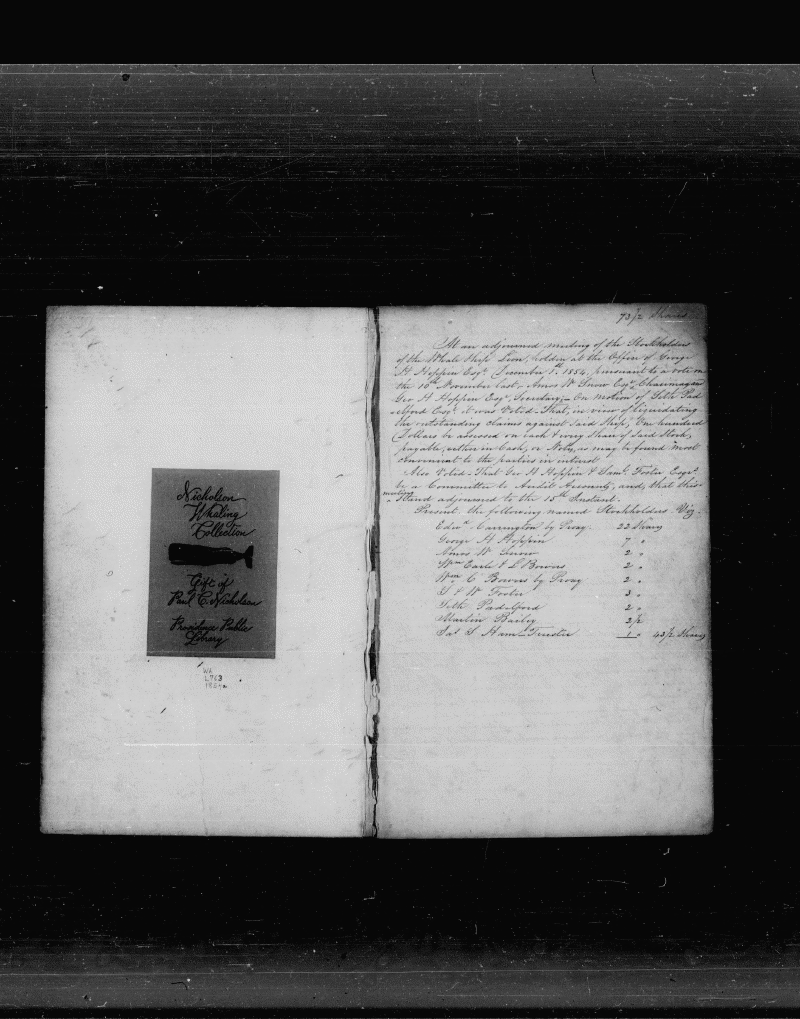 Nicholson
Whaling
Collection
Gift of
Paul C. Nicholson
Providence Public
Library
WA
L763
1854a
73/2 Shares
At an adjourned meeting of the Stockholders
of the Whale Ship Lion, holden at the Office of George
H Hoppin Esqr. December 1st. 1854, pursuant to a vote on
the 10th November last, Amos W Snow Esqr. Chairman, and
Geo H Hoppin Esqr. Secretary;— On motion of Seth Pad
elford Esqr. it was Voted— That, in view of liquidating
the outstanding claims against said Ship, One hundred
Dollars be assessed on each & every Share of said Stock,
payable, either in Cash, or Notes, as may be found most
convenient to the parties in interest
Also Voted— That Geo H Hoppin & Saml. Foster Esqrs.
be a Committee to Audit Accounts, and, that this
meeting
Stand adjourned to the 15th Instant.
Present the following named Stockholders Viz.
Edwd. Carrington by Proxy. 22 Shares
George H Hoppin 7 "
Amos W Snow 2 "
Wm Earle & L Bowers 2 "
Wm C Bowers by Proxy 2 "
S & W Foster 3 "
Seth Padelford 2 "
Martin Bailey 2/2
S. Ham— Trustee 1 " 43/2 Shares